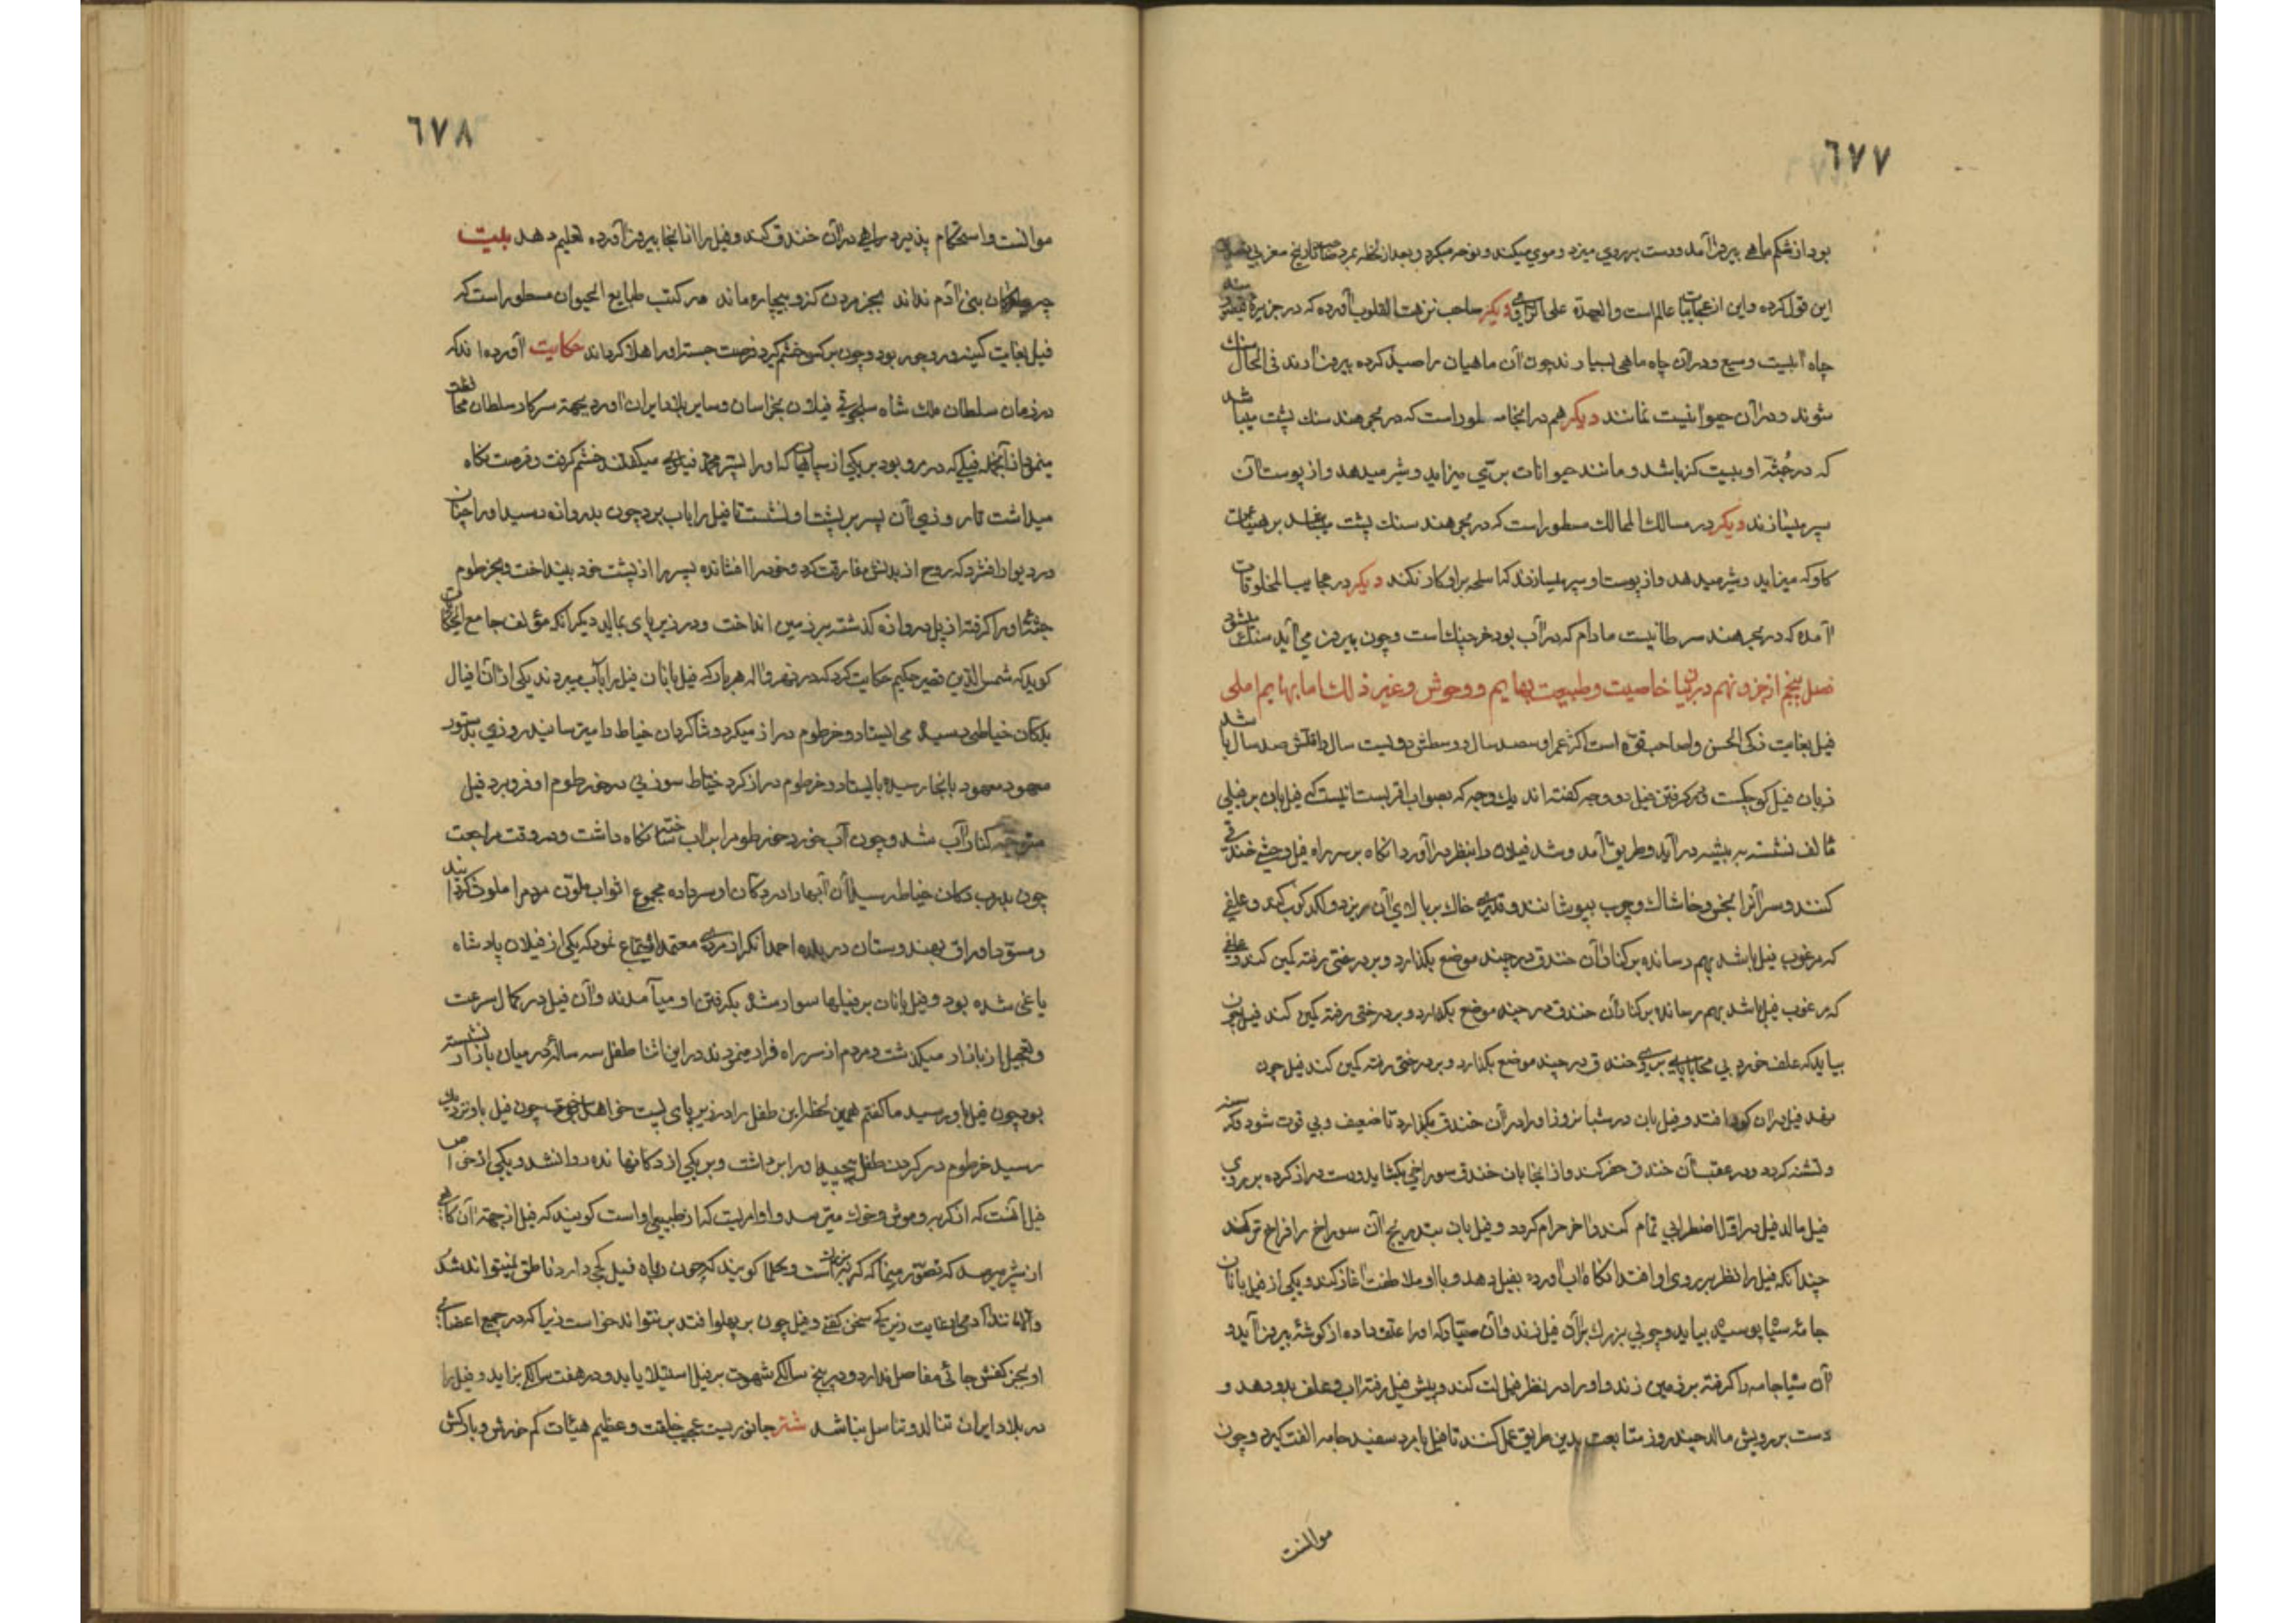 ٦٧٧
بود از شکم ماهی بیرون آمد ودست بر روی میزد و موی میکند و نوحه میکرد و بعد از لحظه بمرد صاحب تاریخ مغربی
این قول کرده واین از عجایبات عالم است والعهدة علی الراوی دیگر صاحب نزهت القلوب آورده که در جزیره
چاه آبیست وسیع ودر آن چاه ماهی بسیارند چون آن ماهیان را صید کرده بیرون آرند فی الحال سنک
شوند ودر آن حیوانیت نماند دیگر هم در انجا مسطور است که در بحر هند سنك پشت میباشد
که در جُثّه او بیست کز باشد ومانند حیوانات برّی میزاید وشیر میدهد واز پوست آن
سپر میسازند دیگر در مسالك الممالك مسطور است که در بحر هند سنك پشت میباشد بر هیئت
کاو که میزاید وشیر میدهد واز پوست او سپر میسازند که اسلحه بر او کار نکند دیگر در عجایب المخلوقات
آمده که در بحر هند سرطانیست مادام که در آب بود خرچنك است وچون بیرون می آید سنك میشود
فصل پنجم از جزو نهم در بیان خاصیت وطبیعت بهایم و وحوش وغیر ذلك اما بهایم اهلی
فیل بغایت ذکی الحسن واصاحب قوّه است اکثر عمر او سیصد سال و وسطش دویست سال واقلش صد سال باشد
زبان فیل کوچکست در کرفتن فیل دو وجه کفته اند یك وجه که بصواب اقربست انیست که فیل بان بر فیلی
مألف نشسته به بیشه در آید وطریق آمد وشد فیلان را بنظر در آورد آنکاه بر سر راه فیل وحشی خندقی
کنند وسر آنرا بخس وخاشاك وچوب بپوشانند وقدری خاك بر بالای آن بریزد و لکد کوب کند وعلفی
که مرغوب فیل باشد بهم رسانده بر کنار آن خندق در چند موضع بکذارد و بر درختی رفته کمین کند
که مرغوب فیل باشد بهم رسانده بر کنار آن خندق در چند موضع بکذارد و بر درختی رفته کمین کند فیل چون
بیاید که علف خورد بی محابا پای بر روی خندق در چند موضع بکذارد و بر درختی رفته کمین کند فیل چون
نهد فیل در ان کود افتد و فیل بان در شبانروز اورا در آن خندق بکذارد تا ضعیف وبی قوت شود
وتشنه کردد ودر عقب آن خندق حفر کند واز انجا بان خندق سوراخی بکشاید ودست دراز کرده بر روی
فیل مالد فیل در اول اضطرابی تمام کند واخر حرام کردد و فیل بان بتدریج آن سوراخ را فراخ تر کند
چندانکه فیل را نظر بر روی او افتد آنکاه اب آورده بفیل دهد وبا او ملاطفت آغاز کند ویکی از فیل بانان
جامهٔ سیاه پوسیده بیاید وچوبی بزرك بر آن فیل زند وآن صیّاد که اورا علف داده از کوشهٔ بیرون آید و
آن سیاه جامه را کرفته بر زمین زند واورا در نظر فیل لت کند وپیش فیل رفته اب وعلف بدو دهد و
دست بر رویش مالد چند روز متابعت بدین طریق عمل کنند تا فیل بامرد سفید جامه الفت کیرد وچون
موانست
٦٧٨
موانست واستحکام پذیرد راهی در آن خندق کند وفیل را از انجا بیرون آورده تعلیم دهد بیت
بنی آدم نداند بجز مردن کزو بیچاره ماند در کتب طبایع الحیوان مسطور است که
فیل بغایت کینه ور بود وچون بر کسی خشم کیرد فرصت جسته اورا هلاك کرداند حکایت آورده اند که
در زمان سلطان ملك شاه سلجوقی فیلان بخراسان وسایر بلاد ایران آورد بجهة سرکار سلطان
فیلی که در مرو بود بر یکی از سپاهیان که اورا پسر محمد میکفتند خشم کرفت وفرصت نکاه
میداشت تا روزی آن پسر بر پشت او نشست تا فیل را باب برد چون بدروازه رسید اورا چنان
در دیوار افشرد که روح از بدنش مفارقت کرد وخود را افشانده پسر را از پشت خود بینداخت وبخرطوم
جثهٔ اورا کرفته از پل دروازه کذشته بر زمین انداخت ودر زیر پای بمالید دیکر آنکه مؤلف جامع الحکایات
کوید که شمس الدین حکیم حکایت کرد که در نهرواله هر بار که فیل بانان فیل را بآب میبردند یکی از آن افیال
بدکان خیاطی رسیده می ایستاد وخرطوم دراز میکرد وشاکردان خیاط را میترسانید روزی بدستور
معهود بانجا رسیده بایستاد وخرطوم دراز کرد خیاط سوزنی در خرطوم او فرو برد فیل
متوجه کنار آب شد وچون آب خورد خرطوم را از آب نکاه داشت ودر وقت مراجعت
چون بدرب دکان خیاط رسید آن آبها را در دکان او سر داده مجموع اثواب ملوّن مردم را ملوث کردانید
ومسوّد اوراق بهندوستان در بلده احمدانکر از مردی معتمد استماع نمود که یکی از فیلان پادشاه
یاغی شده بود وفیل بانان بر فیلها سوار شده بکرفتن او میآمدند وآن فیل در کمال سرعت
وتعجیل از بازار میکذشت ومردم از سر راه فرار مینمودند در این اثنا طفل سه ساله در میان بازار نشسته
بود چون فیل باو رسید ما کفتم همین لحظه این طفل را در زیر پای پست خواهد چون فیل باو نزدیك
رسید خرطوم در کردن طفل پیچیده اورا برداشت وبر یکی از دکانها نهاده روانه شد ویکی از خواص
فیل آنست که از کربه وموش وخوك میترسد واو امریست که از طبیعی او است کویند که فیل از جهة آن
از شیر میرسد که تصوّر مینماید که کربه است وحکما کویند که چون زبان فیل کجی دارد ناطق نمیتواند شد
وفیل چون بر پهلو افتد بر نتواند خواست زیرا که در جمیع اعضای
او بجز کفش جائی مفاصل ندارد ودر پنج سالکی شهوت بر فیل استیلا یابد ودر هفت سالکی بزاید وفیل را
در بلاد ایران تناکد وتناسل نباشد شتر جانوریست عجیب خلقت وعظیم هیئات کم خورش وبارکش